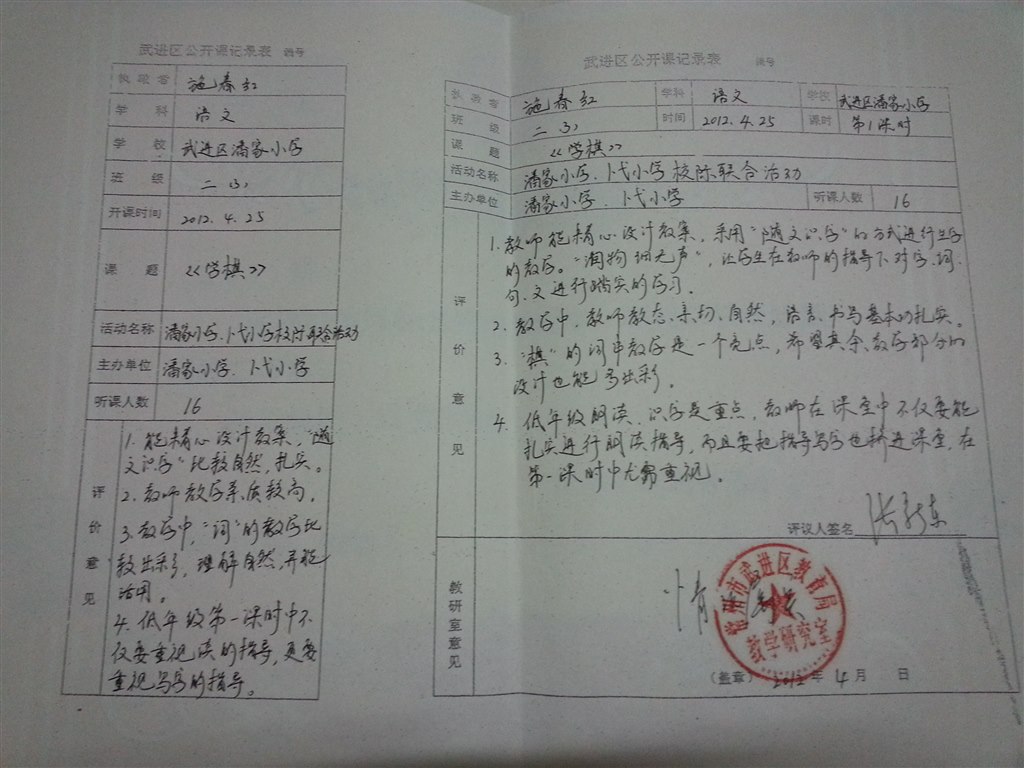 武进区公开课记录表 编号
执教者 施春红
学科 语文
学校 武进区潘家小学
班级 二(3)
开课时间 2012.4.25
课题 《学棋》
活动名称 潘家小学、卜弋小学校际联合活动
主办单位 潘家小学、卜弋小学
听课人数 16
评价意见
1.能精心设计教案,“随
文识字”比较自然,扎实。
2.教师教学素质较高。
3.教学中,“词”的教学比
较出彩,理解自然,并能
活用。
4.低年级第一课时中不
仅要重视读的指导,更要
重视写字的指导。
武进区公开课记录表 编号
执教者 施春红 学科 语文 学校 武进区潘家小学
班级 二(3) 时间 2012.4.25 课时 第1课时
课题 《学棋》
活动名称 潘家小学、卜弋小学校际联合活动
主办单位 潘家小学、卜弋小学 听课人数 16
评价意见
1.教师能精心设计教案,采用“随文识字”的方式进行生字
的教学。“润物细无声”,让学生在教师的指导下对字、词、
句、文进行踏实的学习。
2.教学中,教师教态亲切、自然,语言、书写基本功扎实。
3.“棋”的词串教学是一个亮点,希望其余教学部分的
设计也能多出彩。
4.低年级朗读、识字是重点,教师在课堂中不仅要能
扎实进行朗读指导,而且要把指导写字也挤进课堂,在
第一课时中尤需重视。
评议人签名
教研室意见
常州市武进区教育局
教学研究室
(盖章) 2012年4月 日